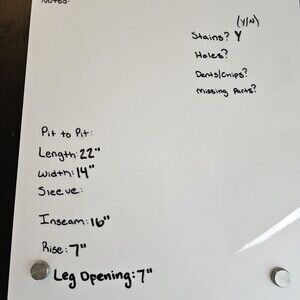 Notes:
(Y/N)
Stains? Y
Holes?
Dents/Chips?
Missing Parts?
Pit to Pit:
Length: 22"
Width: 14"
Sleeve:
Inseam: 16"
Rise: 7"
Leg Opening: 7"